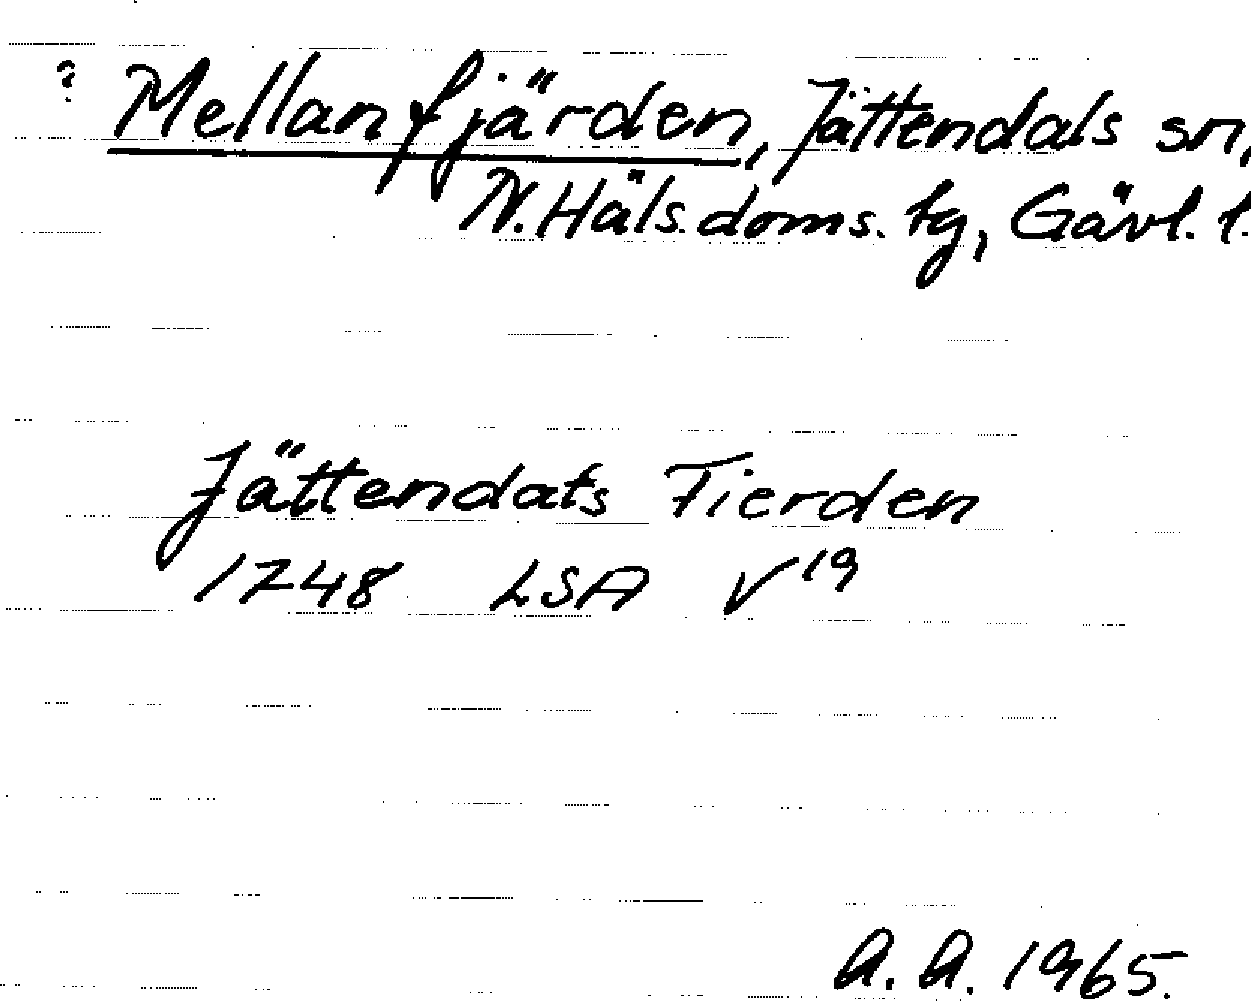 ? Mellanfjärden, Jättendals sn,
N. Häls. doms. tg, Gävl. l.
Jättendats Fierden
1748 LSA V 19
A. A. 1965.